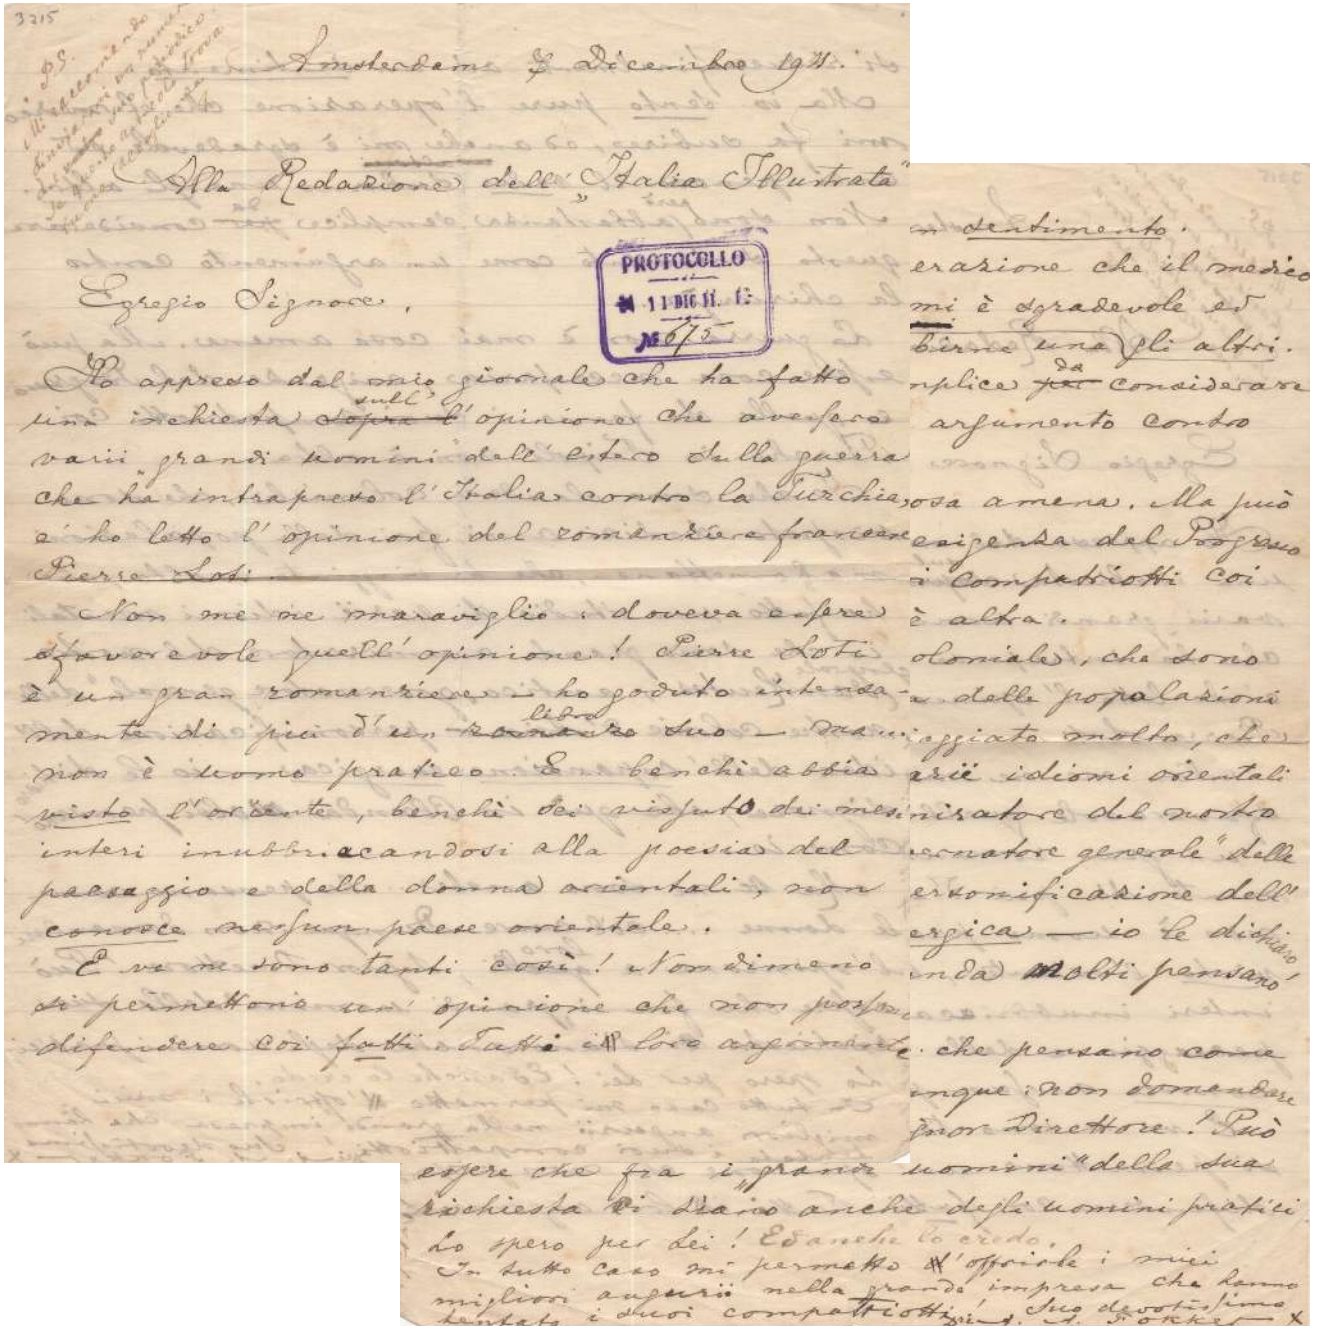 3215
P.S.
Mi raccomando
Amsterdam 8 Dicembre 1911.
Alla Redazione dell' „Italia Illustrata"
PROTOCOLLO
11 DIC 11
№ 675
Egregio Signore,
Ho appreso dal mio giornale che ha fatto
una inchiesta sopra l' sull' opinione che avessero
varii „grandi uomini dell' estero sulla guerra
che ha intrapreso l' Italia contro la Turchia,
e ho letto l' opinione del romanziere francese
Pierre Loti.
Non me ne maraviglio: doveva essere
sfavorevole quell' opinione! Pierre Loti
è un gran romanziere — ho goduto intensa-
mente di più d'un romanzo libro suo — ma
non è uomo pratico. E benchè abbia
visto l'oriente, benchè sei vissuto dei mesi
interi inubbriacandosi alla poesia del
paesaggio e della donna orientali, non
conosce nessun paese orientale.
E ve ne sono tanti così! Nondimeno
si permettono un' opinione che non posson
difendere coi fatti. Tutti i loro argomenti
sentimento.
erazione che il medico
mi è sgradevole ed
birne una gli altri.
mplice per da considerare
argumento contro
osa amena. Ma può
esigenza del Progresso
i compatriotti coi
è altra.
oloniale, che sono
delle popolazioni
aggiato molto, che
arii idiomi orientali
miratore del nostro
ernatore generale" delle
ersonificazione dell'
ergica — io le dichiaro,
nda molti pensano
che pensano come
unque: non domandare
gnor Direttore! Può
essere che fra i „grandi uomini" della sua
richiesta vi siano anche degli uomini pratici
Lo spero per Lei! Ed anche lo credo.
In tutto caso mi permetto d'offrirle i miei
migliori augurii nella grande impresa che hanno
tentato i suoi compatriotti! Suo devotissimo
A. A. Fokker